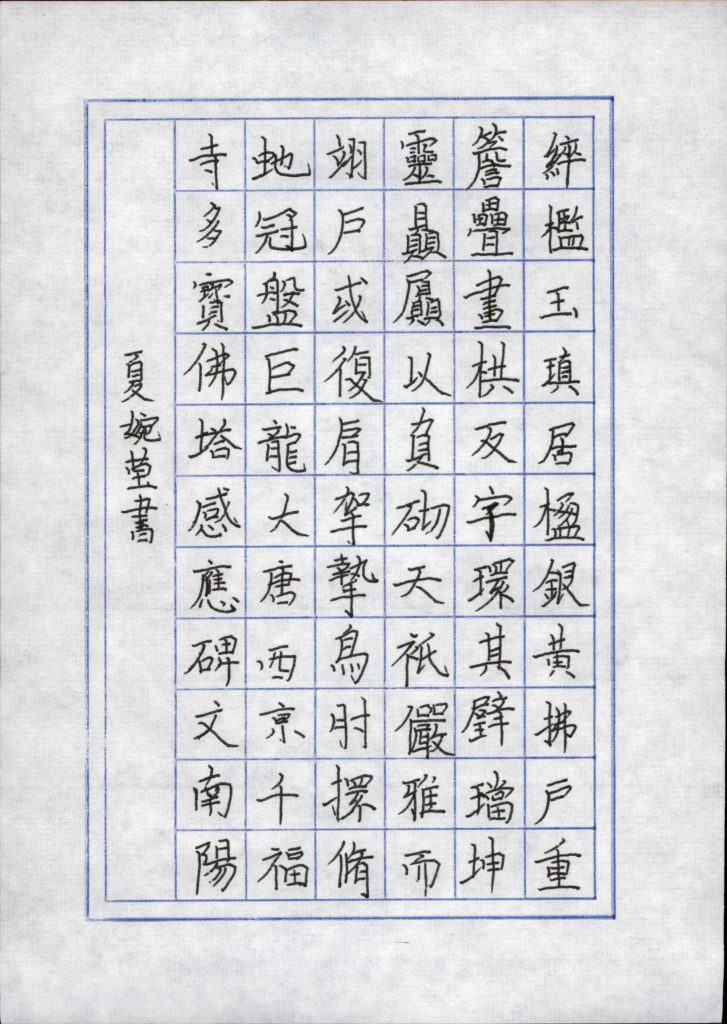 綷檻玉瑱居楹銀黃拂戶重
簷疊畫栱反宇環其璧璫坤
靈贔屭以負砌天祇儼雅而
翊戶或復肩挐摯鳥肘擐脩
虵冠盤巨龍大唐西京千福
寺多寶佛塔感應碑文南陽
夏婉莹書